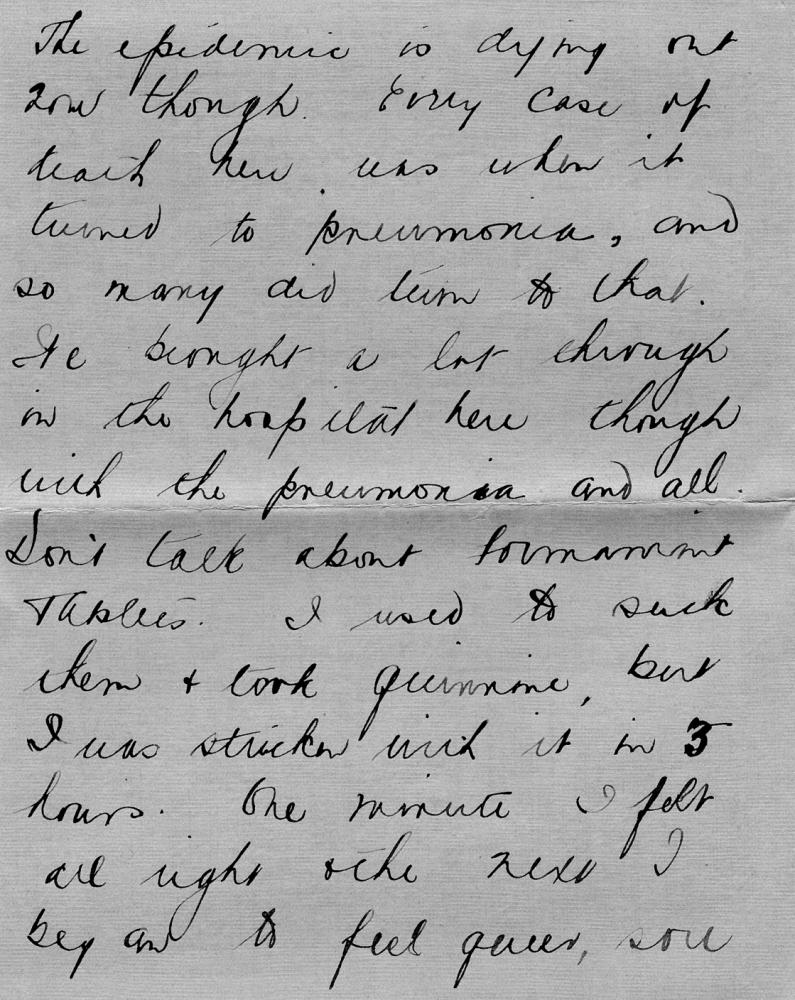 The epidemic is dying out
now though. Every case of
death here was when it
turned to pneumonia, and
so many did turn to that.
We brought a lot through
in the hospital here though
with the pneumonia and all.
Don't talk about Formamint
Tablets. I used to suck
them + took quinnine, but
I was stricken with it in 3
hours. One minute I felt
all right + the next I
began to feel queer, so